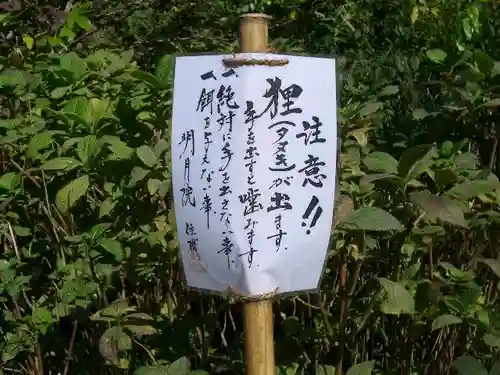 注意!!
狸(タヌキ)が出ます。
手を出すと噛みます。
一、絶対に手を出さない事
一、餌を与えない事
明月院 住職